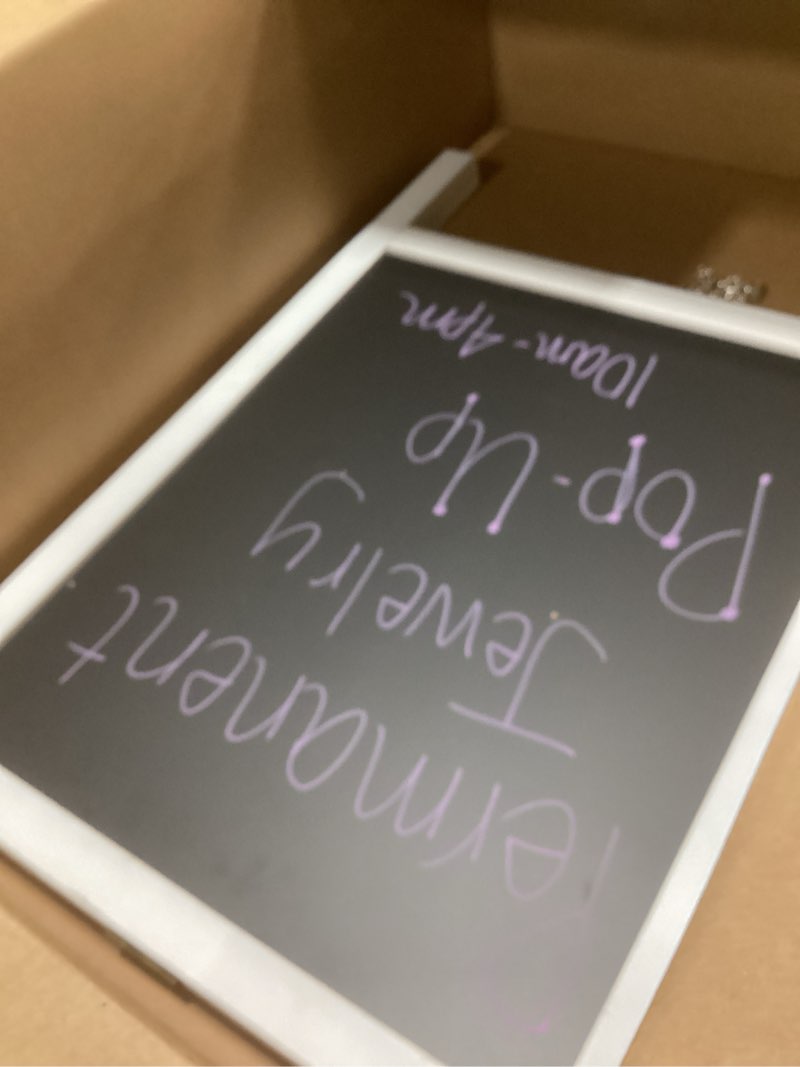 Permanent
Jewelry
Pop-Up
10am-4pm